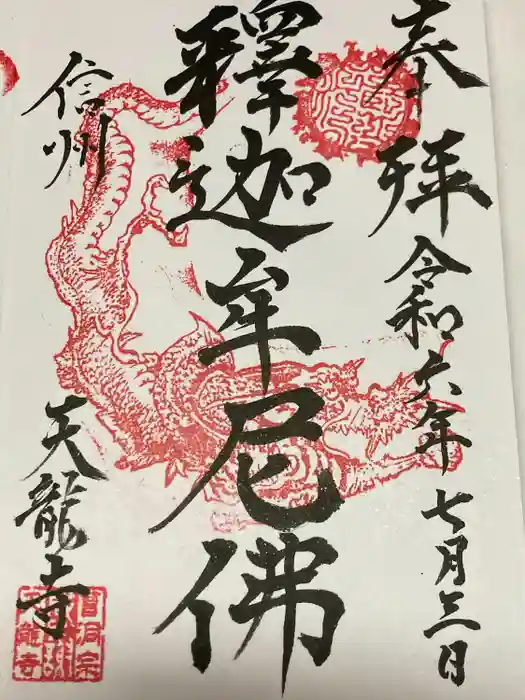 奉拝
令和六年七月三日
釋迦牟尼佛
信州
天龍寺